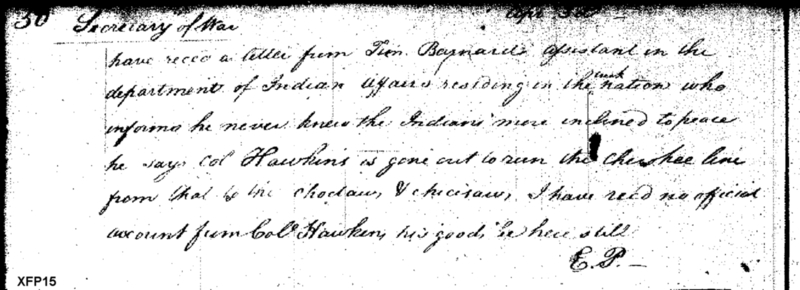 30
Secretary of War
have recd a letter from Tim. Barnard assistant in the
department of Indian Affairs residing in the creek nation who
informs he never knew the Indians more inclined to peace
he says Col Hawkins is gone out to run the Cherokee line
from that to the Choctaws & chicisaws, I have recd no official
account from Colo. Hawkins his goods &c here still
E. P. —
XFP15